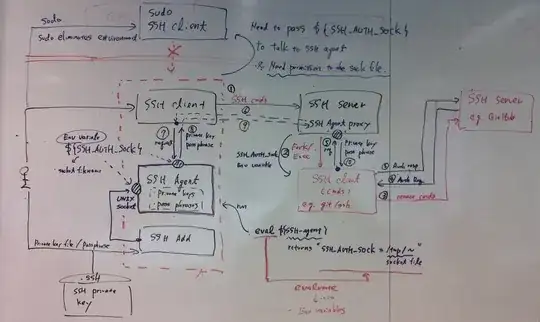 Sudo
Sudo eliminates environment
Sudo
SSH client
Need to pass ${SSH_AUTH_SOCK}
to talk to SSH agent
Need permission to the sock file.
SSH client
① SSH cmds
SSH Server
SSH Agent proxy
SSH Server
e.g. GitHub
request
Private key
pass phrase
Env variable
${SSH_AUTH_SOCK}
socket filename
SSH_AUTH_SOCK
Env variable
Fork/
Exec
Private key
pass phrase
SSH client
(cmds)
e.g. git/ssh
Auth resp
Auth Req
③ remote cmds
SSH Agent
Private keys
pass phrases
UNIX
socket
SSH Add
Private key file / passphrase
.SSH
SSH private
key
eval ${SSH-agent}
returns "SSH_AUTH_SOCK = /tmp/~"
socket file
evaluate
Env variables